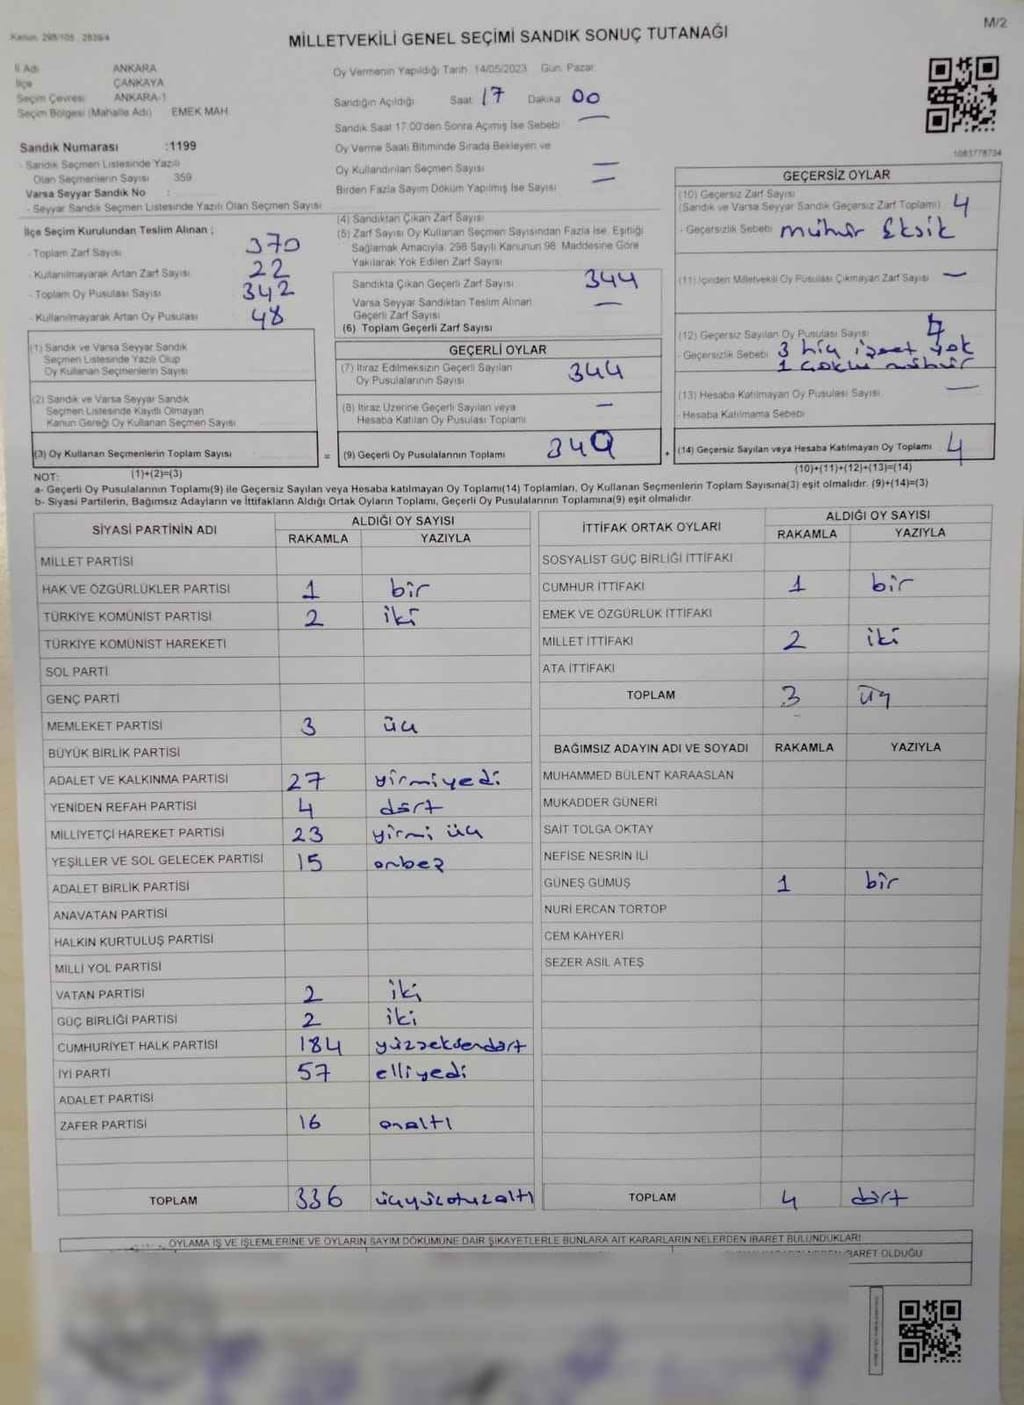 M/2
Kanun: 298/105 , 2839/4
MİLLETVEKİLİ GENEL SEÇİMİ SANDIK SONUÇ TUTANAĞI
İl Adı ANKARA
İlçe ÇANKAYA
Seçim Çevresi ANKARA-1
Seçim Bölgesi (Mahalle Adı) EMEK MAH.
Sandık Numarası :1199
- Sandık Seçmen Listesinde Yazılı
Olan Seçmenlerin Sayısı 359
Varsa Seyyar Sandık No :
- Seyyar Sandık Seçmen Listesinde Yazılı Olan Seçmen Sayısı
İlçe Seçim Kurulundan Teslim Alınan ;
- Toplam Zarf Sayısı 370
- Kullanılmayarak Artan Zarf Sayısı 22
- Toplam Oy Pusulası Sayısı 342
- Kullanılmayarak Artan Oy Pusulası 48
(1) Sandık ve Varsa Seyyar Sandık
Seçmen Listesinde Yazılı Olup
Oy Kullanan Seçmenlerin Sayısı
(2) Sandık ve Varsa Seyyar Sandık
Seçmen Listesinde Kayıtlı Olmayan
Kanun Gereği Oy Kullanan Seçmen Sayısı
(3) Oy Kullanan Seçmenlerin Toplam Sayısı
(1)+(2)=(3)
Oy Vermenin Yapıldığı Tarih: 14/05/2023 Gün: Pazar
Sandığın Açıldığı Saat 17 Dakika 00
Sandık Saat 17.00'den Sonra Açılmış İse Sebebi —
Oy Verme Saati Bitiminde Sırada Bekleyen ve
Oy Kullandırılan Seçmen Sayısı —
Birden Fazla Sayım Döküm Yapılmış İse Sayısı —
(4) Sandıktan Çıkan Zarf Sayısı
(5) Zarf Sayısı Oy Kullanan Seçmen Sayısından Fazla İse, Eşitliği
Sağlamak Amacıyla, 298 Sayılı Kanunun 98. Maddesine Göre
Yakılarak Yok Edilen Zarf Sayısı
Sandıkta Çıkan Geçerli Zarf Sayısı 344
Varsa Seyyar Sandıktan Teslim Alınan
Geçerli Zarf Sayısı —
(6) Toplam Geçerli Zarf Sayısı
GEÇERLİ OYLAR
(7) İtiraz Edilmeksizin Geçerli Sayılan
Oy Pusulalarının Sayısı 344
(8) İtiraz Üzerine Geçerli Sayılan veya
Hesaba Katılan Oy Pusulası Toplamı —
= (9) Geçerli Oy Pusulalarının Toplamı
GEÇERSİZ OYLAR
(10) Geçersiz Zarf Sayısı
(Sandık ve Varsa Seyyar Sandık Geçersiz Zarf Toplamı) 4
- Geçersizlik Sebebi mühür Eksik
(11) İçinden Milletvekili Oy Pusulası Çıkmayan Zarf Sayısı —
(12) Geçersiz Sayılan Oy Pusulası Sayısı
- Geçersizlik Sebebi 3 hiç işaret yok
1 çoklu mühür
(13) Hesaba Katılmayan Oy Pusulası Sayısı —
- Hesaba Katılmama Sebebi
+ (14) Geçersiz Sayılan veya Hesaba Katılmayan Oy Toplamı 4
(10)+(11)+(12)+(13)=(14)
NOT:
a- Geçerli Oy Pusulalarının Toplamı(9) ile Geçersiz Sayılan veya Hesaba katılmayan Oy Toplamı(14) Toplamları, Oy Kullanan Seçmenlerin Toplam Sayısına(3) eşit olmalıdır. (9)+(14)=(3)
b- Siyasi Partilerin, Bağımsız Adayların ve İttifakların Aldığı Ortak Oyların Toplamı, Geçerli Oy Pusulalarının Toplamına(9) eşit olmalıdır.
SİYASİ PARTİNİN ADI ALDIĞI OY SAYISI
RAKAMLA YAZIYLA
MİLLET PARTİSİ
HAK VE ÖZGÜRLÜKLER PARTİSİ 1 bir
TÜRKİYE KOMÜNİST PARTİSİ 2 iki
TÜRKİYE KOMÜNİST HAREKETİ
SOL PARTİ
GENÇ PARTİ
MEMLEKET PARTİSİ 3 üç
BÜYÜK BİRLİK PARTİSİ
ADALET VE KALKINMA PARTİSİ 27 yirmiyedi
YENİDEN REFAH PARTİSİ 4 dört
MİLLİYETÇİ HAREKET PARTİSİ 23 yirmi üç
YEŞİLLER VE SOL GELECEK PARTİSİ 15 onbeş
ADALET BİRLİK PARTİSİ
ANAVATAN PARTİSİ
HALKIN KURTULUŞ PARTİSİ
MİLLİ YOL PARTİSİ
VATAN PARTİSİ 2 iki
GÜÇ BİRLİĞİ PARTİSİ 2 iki
CUMHURİYET HALK PARTİSİ 184 yüzseksendört
İYİ PARTİ 57 elliyedi
ADALET PARTİSİ
ZAFER PARTİSİ 16 onaltı
TOPLAM 336 üçyüzotuzaltı
İTTİFAK ORTAK OYLARI ALDIĞI OY SAYISI
RAKAMLA YAZIYLA
SOSYALİST GÜÇ BİRLİĞİ İTTİFAKI
CUMHUR İTTİFAKI 1 bir
EMEK VE ÖZGÜRLÜK İTTİFAKI
MİLLET İTTİFAKI 2 iki
ATA İTTİFAKI
TOPLAM 3 üç
BAĞIMSIZ ADAYIN ADI VE SOYADI RAKAMLA YAZIYLA
MUHAMMED BÜLENT KARAASLAN
MUKADDER GÜNERİ
SAİT TOLGA OKTAY
NEFİSE NESRİN İLİ
GÜNEŞ GÜMÜŞ 1 bir
NURİ ERCAN TORTOP
CEM KAHYERİ
SEZER ASİL ATEŞ
TOPLAM 4 dört
OYLAMA İŞ VE İŞLEMLERİNE VE OYLARIN SAYIM DÖKÜMÜNE DAİR ŞİKAYETLERLE BUNLARA AİT KARARLARIN NELERDEN İBARET BULUNDUKLARI
İBARET OLDUĞU